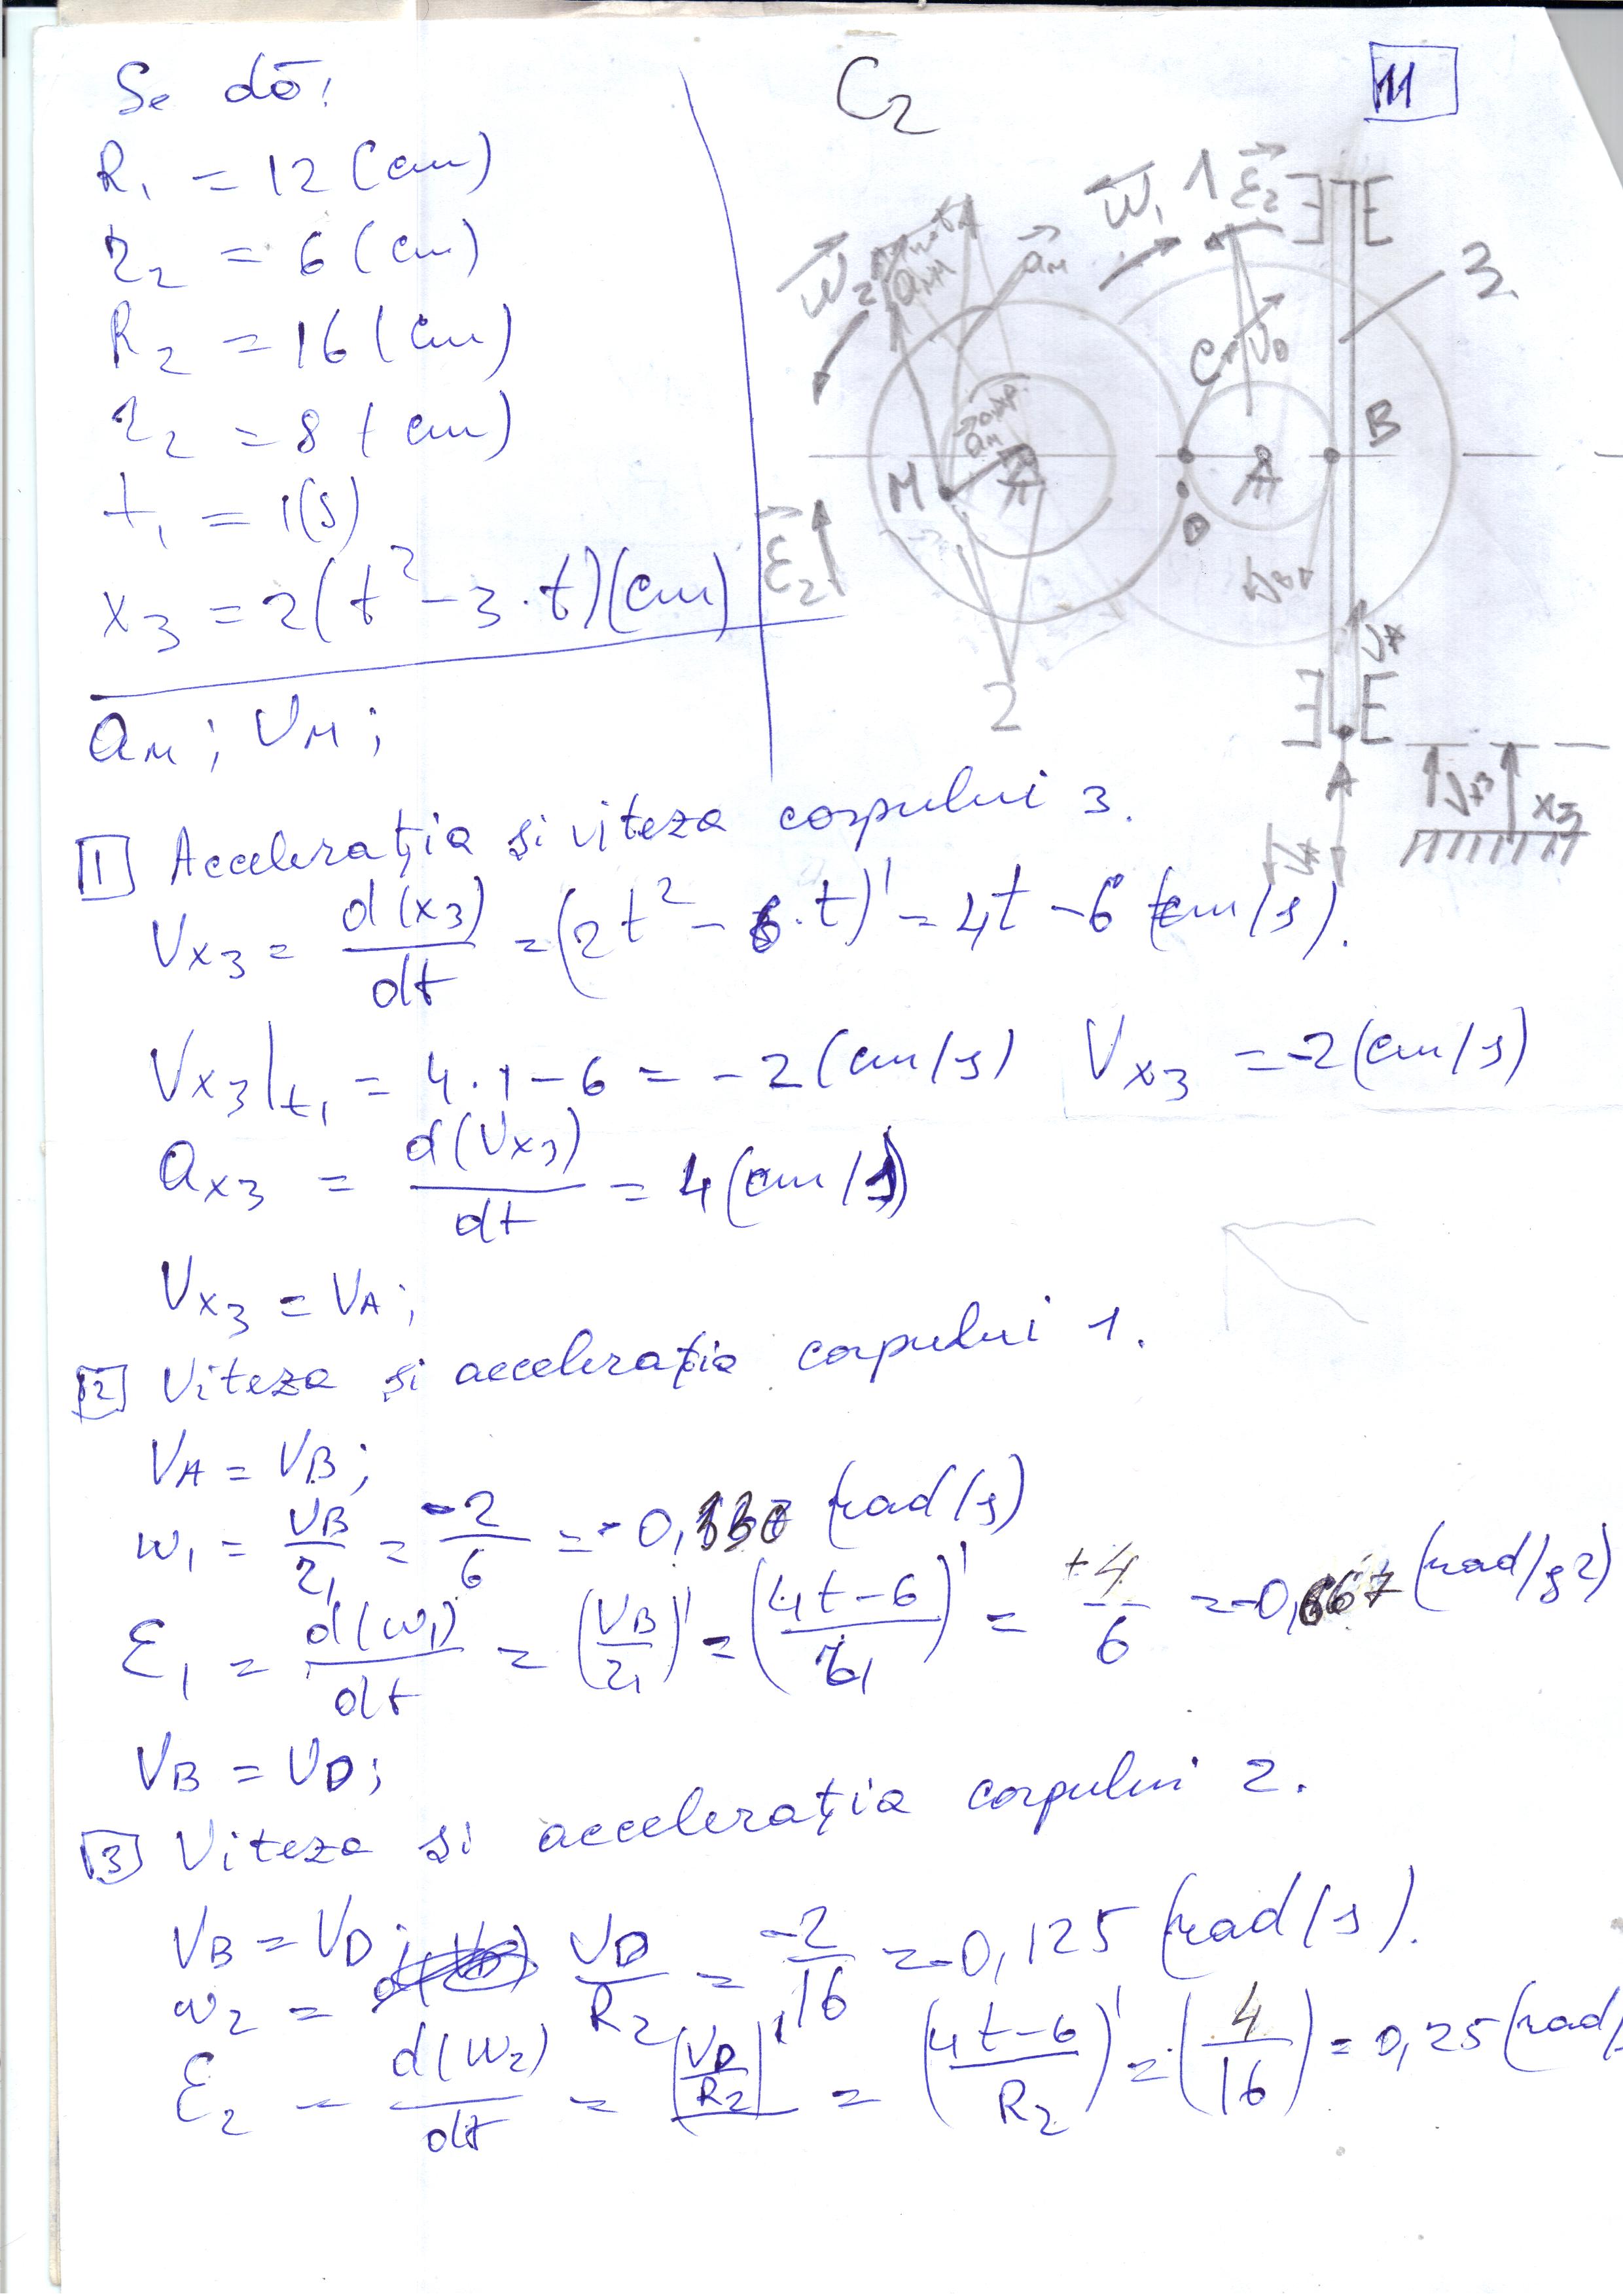 Se dă:
R₁ = 12 (cm)
r₂ = 6 (cm)
R₂ = 16 (cm)
r₂ = 8 (cm)
t₁ = 1(s)
x₃ = 2(t² - 3·t)(cm)
aM; VM;
C₂
11
W₁ 1 ε₂
W₂
aM
3
C
VD
M
A
B
D
ε₂
2
A
x₃
1 Accelerația și viteza corpului 3.
Vx₃ = d(x₃)/dt = (2t² - 6·t)' = 4t - 6 (cm/s).
Vx₃|t₁ = 4·1 - 6 = -2 (cm/s) Vx₃ = -2 (cm/s)
ax₃ = d(Vx₃)/dt = 4 (cm/s)
Vx₃ = VA;
2 Viteza și accelerația corpului 1.
VA = VB;
w₁ = VB/r₁ = -2/6 = -0, (rad/s)
ε₁ = d(w₁)/dt = (VB/r₁)' = ((4t-6)/r₁)' = +4/6 = -0,667 (rad/s²)
VB = VD;
3 Viteza si accelerația corpului 2.
VB = VD;
w₂ = VD/R₂ = -2/16 = -0,125 (rad/s).
ε₂ = d(w₂)/dt = (VD/R₂)' = ((4t-6)/R₂)' = (4/16) = 0,25 (rad/